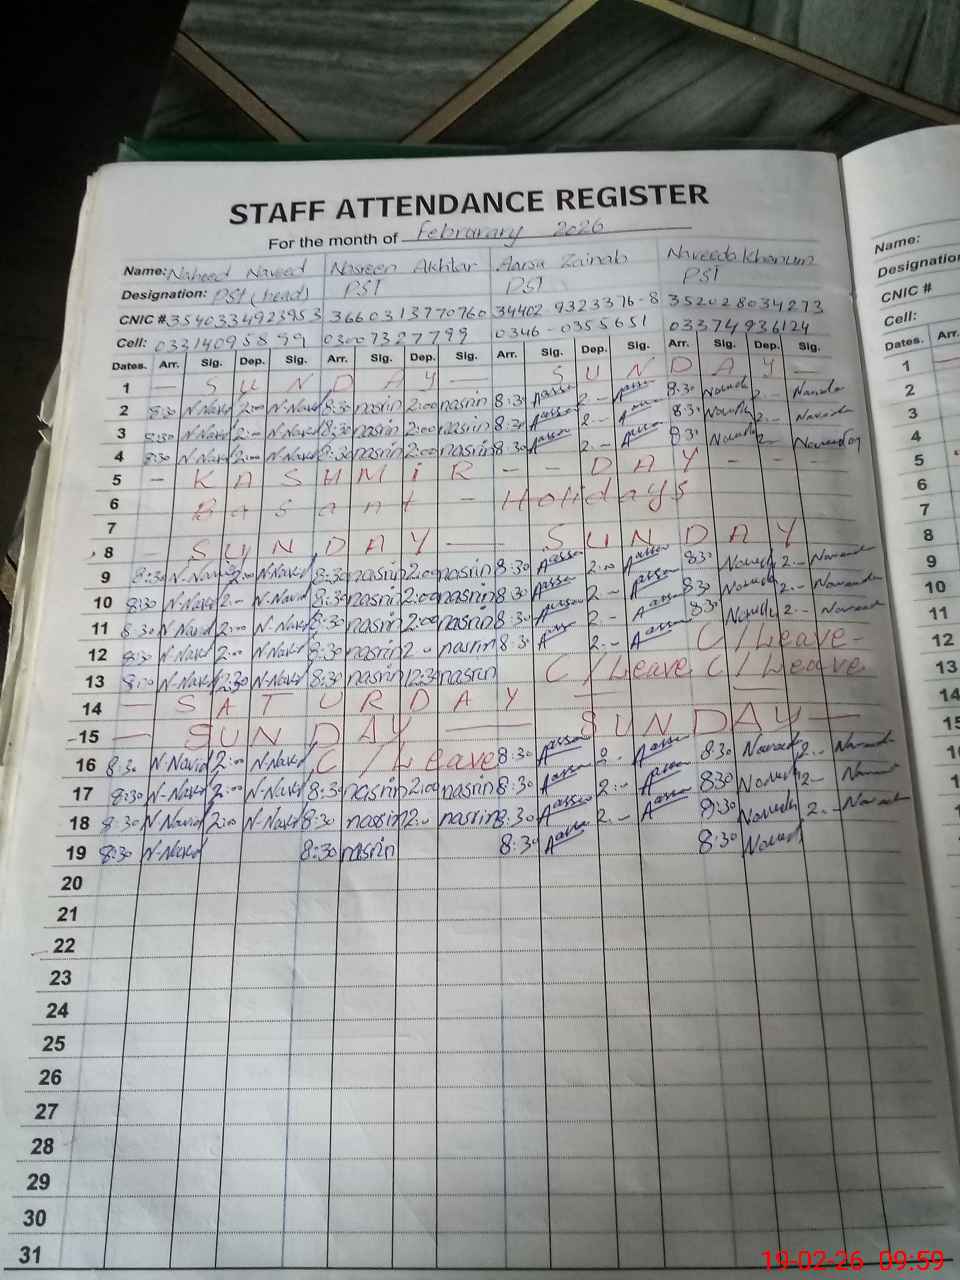 STAFF ATTENDANCE REGISTER
For the month of Febrarary 2026
Name: Naheed Naveed Nasreen Akhtar Aarsa Zainab Naveeda Khanum
Designation: PST (head) PST PST PST
CNIC # 3540334923953 3660313770760 34402-9323376-8 352028034273
Cell: 03314095899 03007327799 0346-0355651 03374936124
Dates. Arr. Sig. Dep. Sig. Arr. Sig. Dep. Sig. Arr. Sig. Dep. Sig. Arr. Sig. Dep. Sig.
1 — SUNDAY — SUNDAY —
2 8:30 N-Naved 2:00 N-Naved 8:30 nasrin 2:00 nasrin 8:30 2:- 8:30 2:-
3 8:30 N-Naved 2:- N-Naved 8:30 nasrin 2:00 nasrin 8:30 2:- 8:30 2:-
4 8:30 N-Naved 2:- N-Naved 8:30 nasrin 2:00 nasrin 8:30 2:- 8:30 2:-
5 - KASHMIR - - DAY - - -
6 Basant - Holidays
7
8 — SUNDAY — SUNDAY
9 8:30 N-Naved 2:00 N-Naved 8:30 nasrin 2:00 nasrin 8:30 2:00 830 2:-
10 8:30 N-Naved 2:- N-Navid 8:30 nasrin 2:00 nasrin 8:30 2:- 830 2:-
11 8:30 N-Navid 2:00 N-Naved 8:30 nasrin 2:00 nasrin 8:30 2:- 830 2:-
12 8:30 N-Naved 2:00 N-Naved 8:30 nasrin 2:- nasrin 8:30 2:- C/Leave-
13 N-Naved 12:30 N-Naved 8:30 nasrin 12:30 nasrin C/Leave C/Leave
14 — SATURDAY — —
15 — SUNDAY — SUNDAY —
16 8:30 N-Navid 2:00 N-Naved C/Leave 8:30 8:30 2:-
17 8:30 N-Naved 2:00 N-Naved 8:30 nasrin 2:00 nasrin 8:30 2:- 830 2:-
18 8:30 N-Navid 2:00 N-Naved 8:30 nasrin 2:- nasrin 8:30 2:- 8:30 2:-
19 8:30 N-Naved 8:30 nasrin 8:30 8:30
20
21
22
23
24
25
26
27
28
29
30
31
Name:
Designation
CNIC #
Cell:
Dates. Arr.
1
2
3
4
5
6
7
8
9
10
11
12
13
14
15
16
17
18
19
19-02-26 09:59